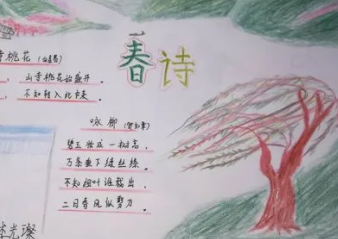 春诗
寺桃花 (白居易)
山寺桃花始盛开
不知转入此中来
咏柳 (贺知章)
碧玉妆成一树高
万条垂下绿丝绦
不知细叶谁裁出
二月春风似剪刀
光璨